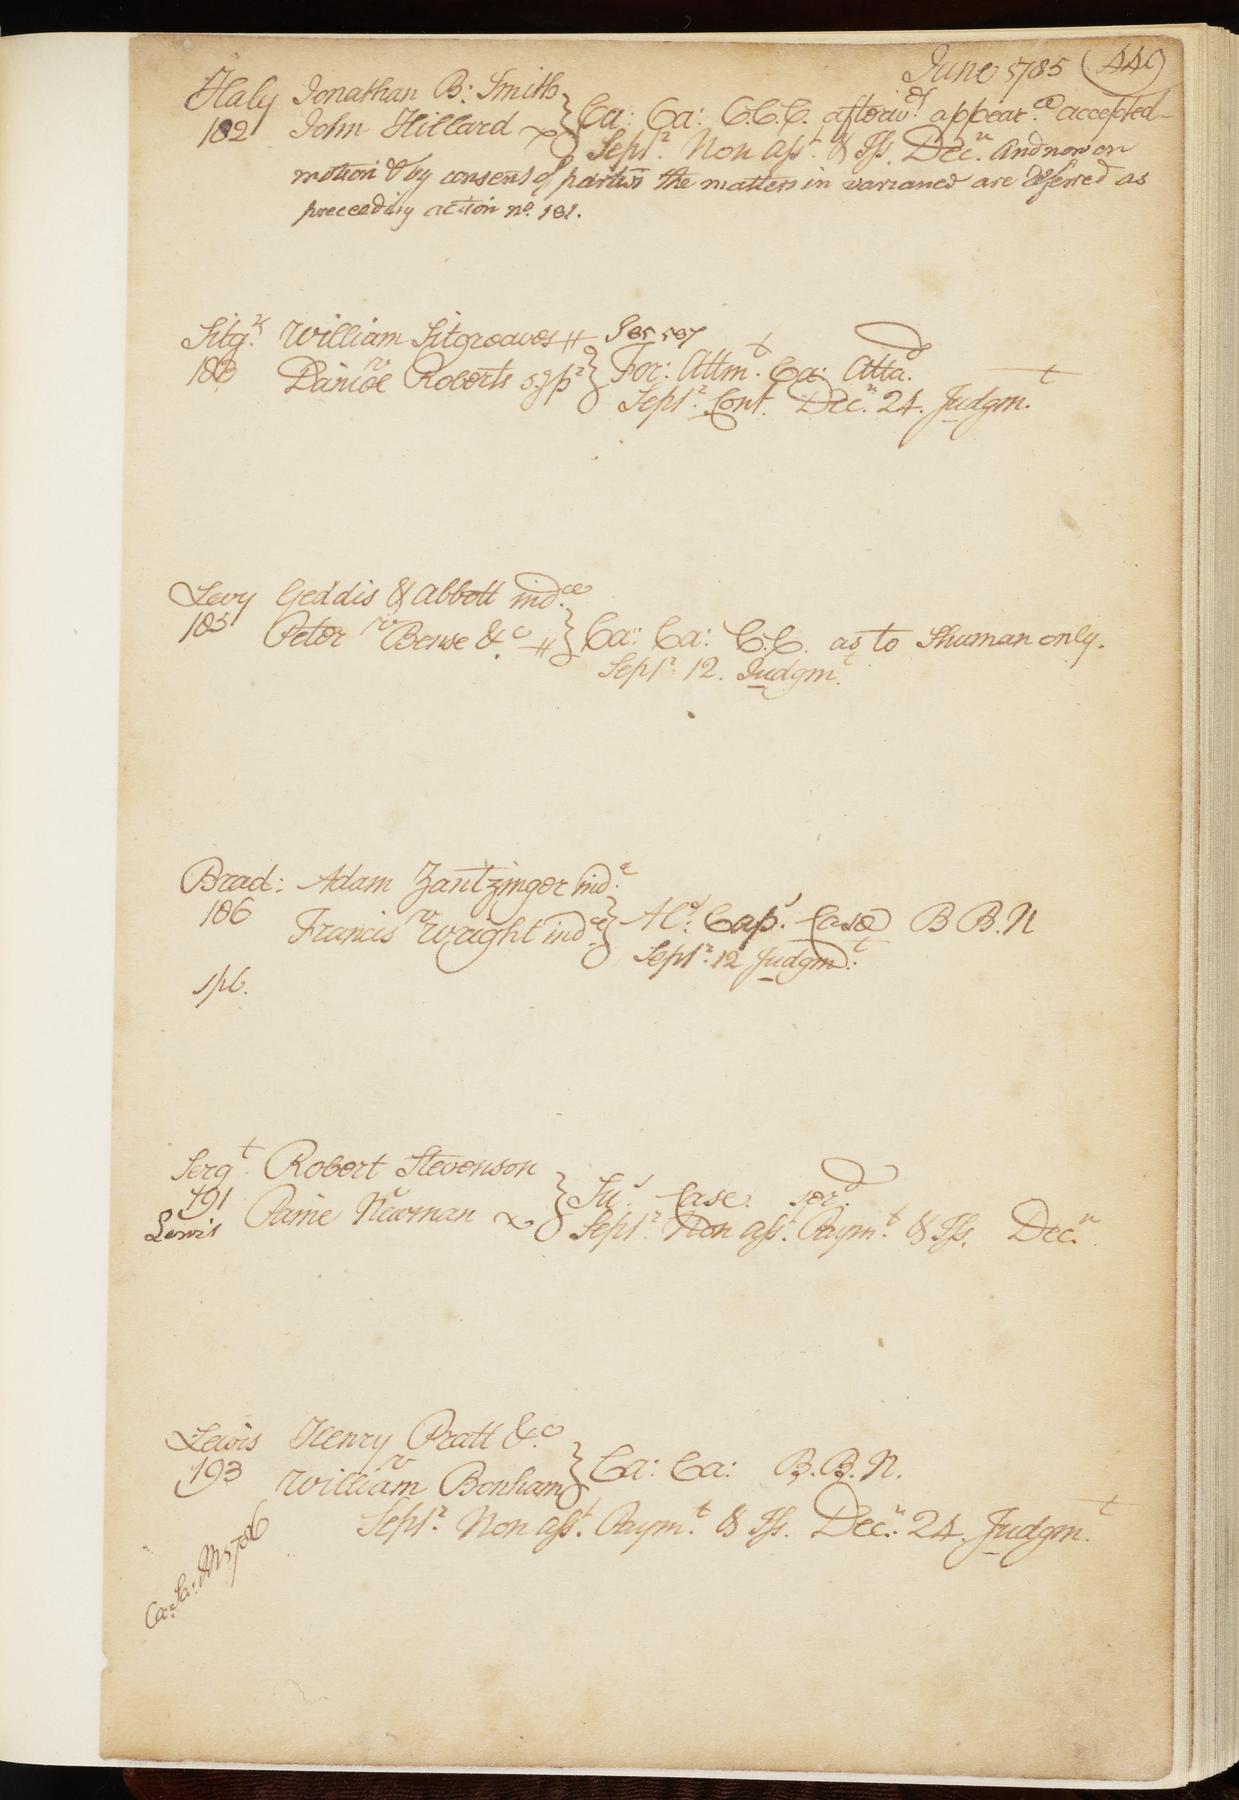 June 1785 (449)
Haly Jonathan B: Smith
182 v John Hillard } Ca: Ca: C.C.C. afterw.ds appear.ce accepted
Sept.r Non ass.t & Iss. Dec.r And now on
motion & by consent of parties the matters in variance are referred as
preceeding action no. 181.
Sitg.s William Sitgreaves
183 v Daniel Roberts } For: Attm.t Ca: Atta.d
Sept.r Cont. Dec.r 24. Judgm.t
Levy Geddis & Abbott ind.ce
185 v Peter Bense &c } Ca: Ca: C.C. as to Shuman only.
Sept.r 12. Judgm.t
Brad: Adam Zantzinger ind.e
186 v Francis Wright ind.e } Al.s Cap.s Case B B.N
Sept.r 12 Judgm.t
Serg.t Robert Stevenson
191 v Paine Newman } Su.s Case. ser.d
Lewis Sept.r Non ass.t Paym.t & Iss. Dec.r
Lewis Henry Pratt &c
193 v William Bonham } Ca: Ca: B.B.N.
Sept.r Non ass.t Paym.t & Iss. Dec.r 24. Judgm.t
Ca: Sa: M 1786